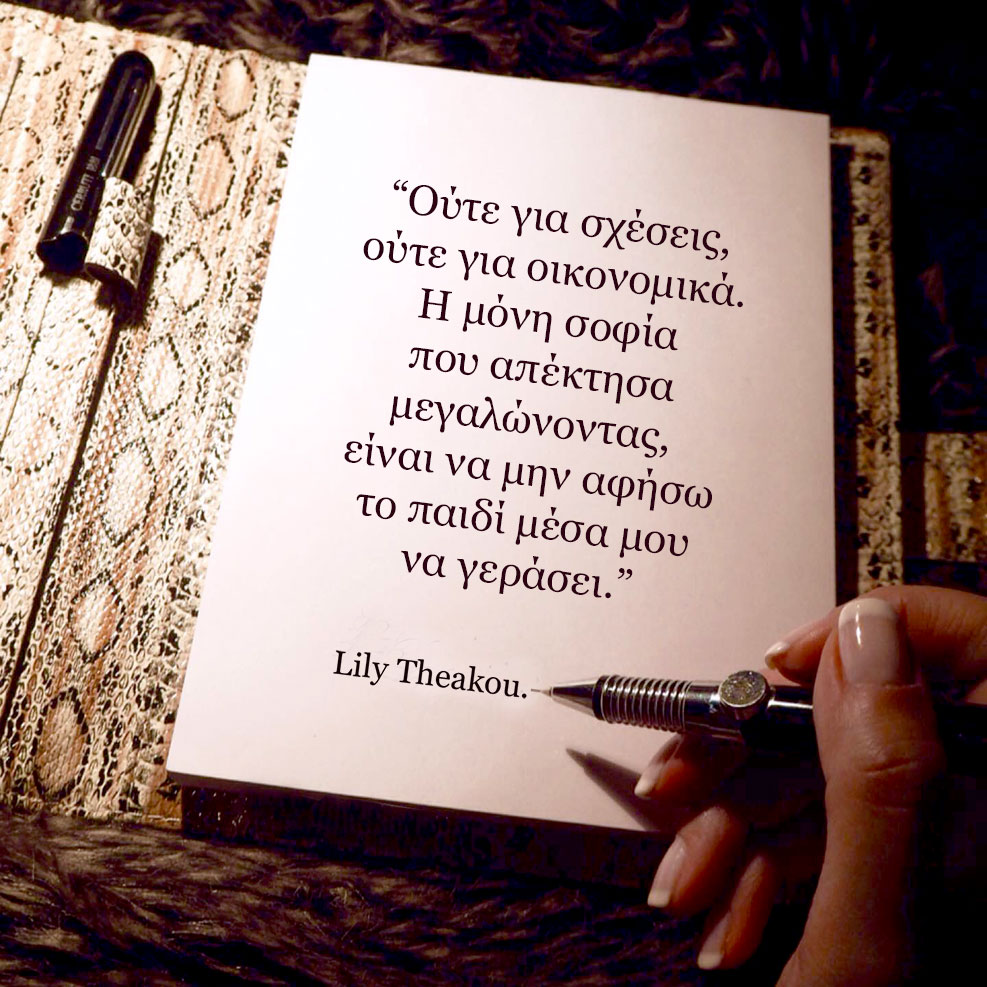 CERRUTI 1881
“Ούτε για σχέσεις,
ούτε για οικονομικά.
Η μόνη σοφία
που απέκτησα
μεγαλώνοντας,
είναι να μην αφήσω
το παιδί μέσα μου
να γεράσει.”
Lily Theakou.